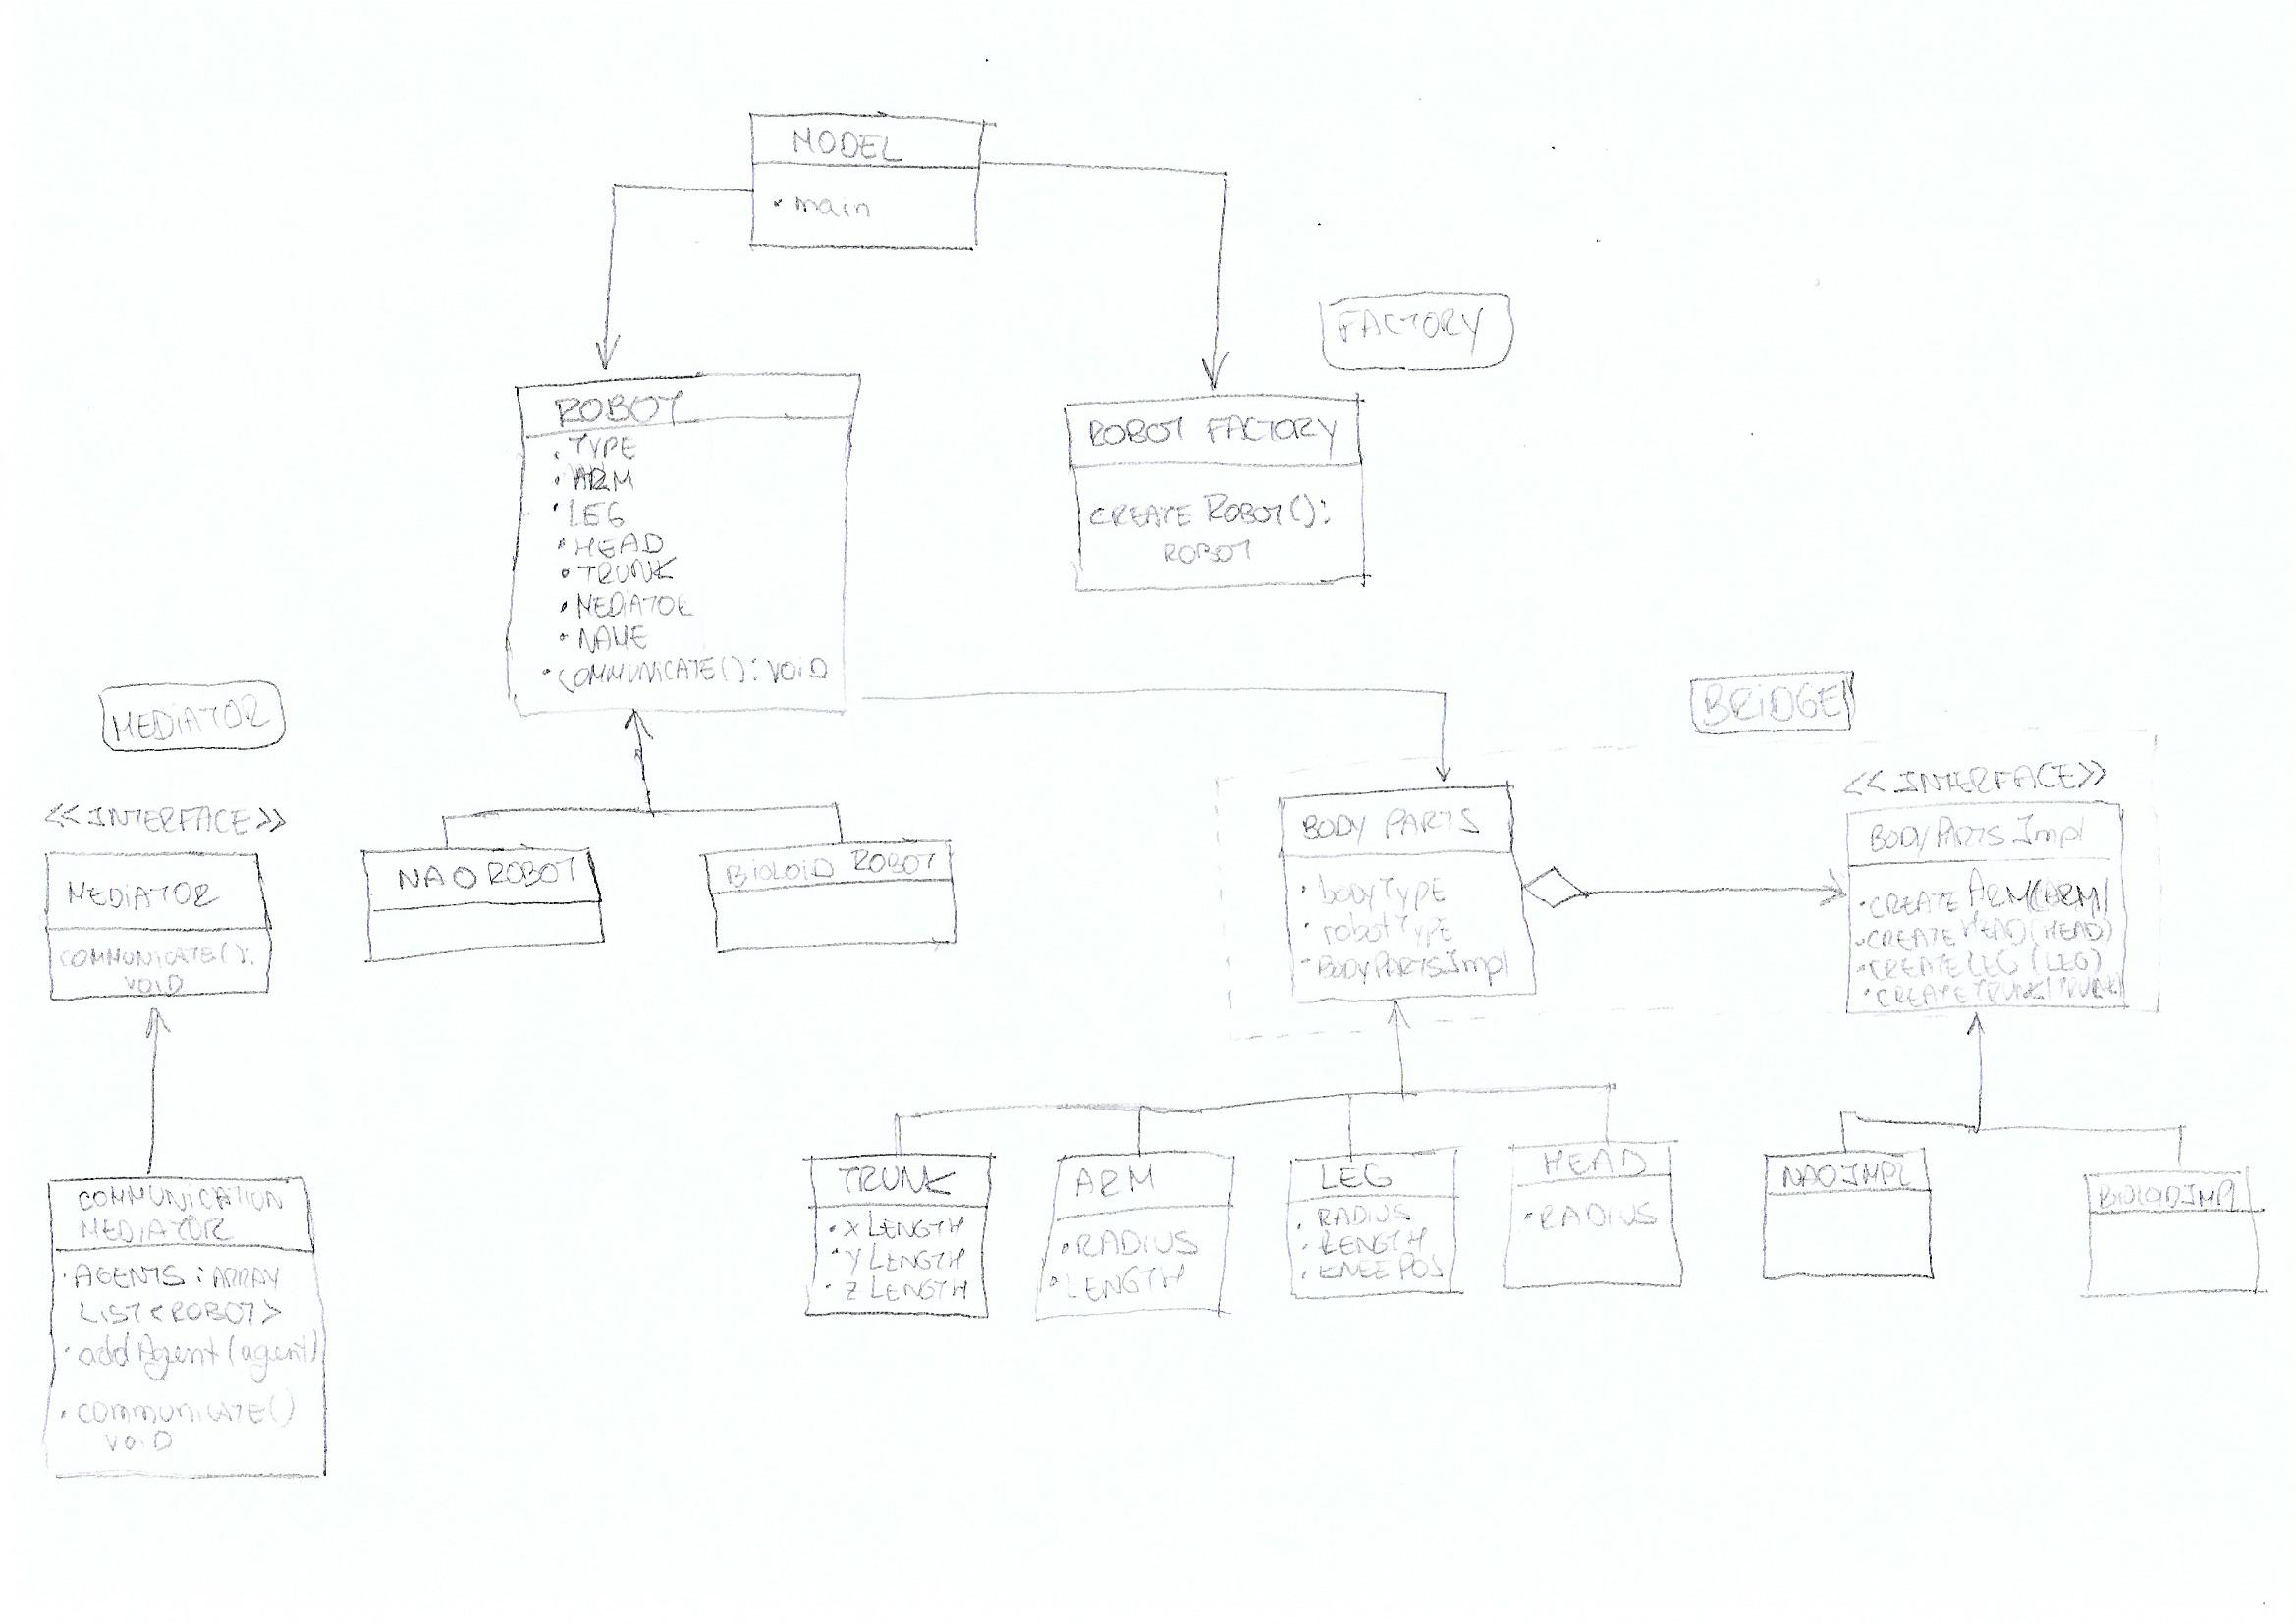 MODEL
• main
FACTORY
ROBOT
• TYPE
• ARM
• LEG
• HEAD
• TRUNK
• MEDIATOR
• NAME
• COMMUNICATE(): VOID
ROBOT FACTORY
CREATE ROBOT():
ROBOT
MEDIATOR
<<INTERFACE>>
MEDIATOR
COMMUNICATE():
VOID
NAO ROBOT
BIOLOID ROBOT
BRIDGE
BODY PARTS
• bodyType
• robotType
• BODYPARTSImpl
<<INTERFACE>>
BODYPARTSImpl
• CREATE ARM(ARM)
• CREATE HEAD(HEAD)
• CREATE LEG(LEG)
• CREATE TRUNK(TRUNK)
COMMUNICATION
MEDIATOR
• AGENTS: ARRAY
LIST<ROBOT>
• addAgent(agent)
• COMMUNICATE()
VOID
TRUNK
• X LENGTH
• Y LENGTH
• Z LENGTH
ARM
• RADIUS
• LENGTH
LEG
• RADIUS
• LENGTH
• KNEE POS
HEAD
• RADIUS
NAOIMPL
BIOLOIDIMPL